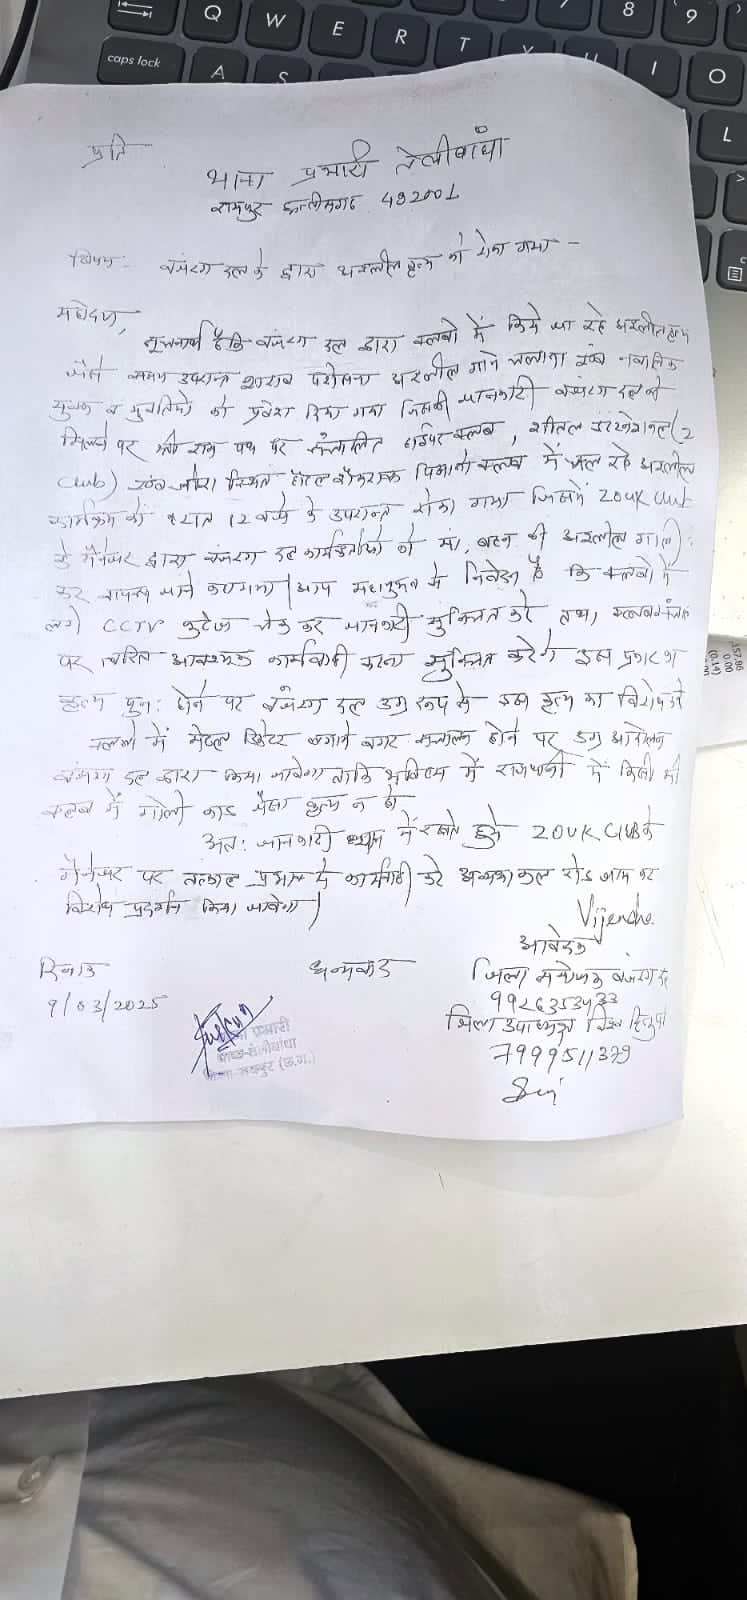 प्रति
थाना प्रभारी तेलीबांधा
रायपुर छत्तीसगढ 492001
विषय: बजरंग दल के द्वारा अश्लील कृत्य को रोका गया -
महोदय,
सूचनार्थ है कि बजरंग दल द्वारा क्लबों में किये जा रहे अश्लील कृत्य
जैसे समय उपरान्त शराब परोसना अश्लील गाने चलाना एवं नाबालिक
युवक व युवतियों को प्रवेश दिया गया जिसकी जानकारी बजरंग दल को
मिलने पर श्री राम पथ पर संचालित हाईपर क्लब, शीतल इंटरनेशनल (2
Club) एवं जोरा स्थित होटल पिआनो क्लब में चल रहे अश्लील
कार्यक्रम को रात 12 बजे के उपरान्त रोका गया जिसमें ZOUK Club
के मैनेजर द्वारा बजरंग दल कार्यकर्ताओं को मां, बहन की अश्लील गाली
कर वापस जाने कहा गया। आप महानुभव से निवेदन है कि क्लबों में
लगे CCTV फुटेज चेक कर जानकारी सुनिश्चित करे तथा, क्लब संचालक
पर त्वरित आवश्यक कार्यवाही करना सुनिश्चित करेंगे इस प्रकार का
कृत्य पुन: होने पर बजरंग दल उग्र रूप से इस कृत्य का विरोध करे
क्लबों में मेटल डिटेक्टर लगाने बगर संचालन होने पर उग्र आंदोलन
बजरंग दल द्वारा किया जावेगा ताकि भविष्य में राजधानी में किसी भी
क्लब में गोली कांड जैसा कृत्य न हो
अत: जानकारी ध्यान में रखते हुये ZOUK CLUB के
मैनेजर पर तत्काल प्रभाव से कार्यवाही करे अन्यथा कल रोड जाम कर
विरोध प्रदर्शन किया जावेगा।
Vijendra
आवेदक
दिनांक
धन्यवाद
जिला संयोजक बजरंग दल
9/03/2025
9926353433
जिला उपाध्यक्ष विश्व हिन्दु प
7999511379
प्रभारी
थाना-तेलीबांधा
जिला-रायपुर (छ.ग.)